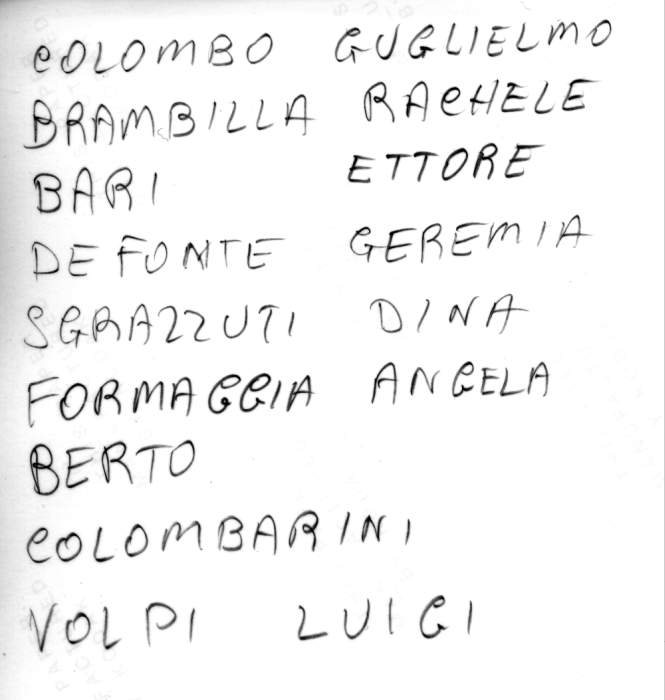 COLOMBO GUGLIELMO
BRAMBILLA RACHELE
BARI ETTORE
DE FONTE GEREMIA
SGRAZZUTI DINA
FORMAGGIA ANGELA
BERTO
COLOMBARINI
VOLPI LUIGI